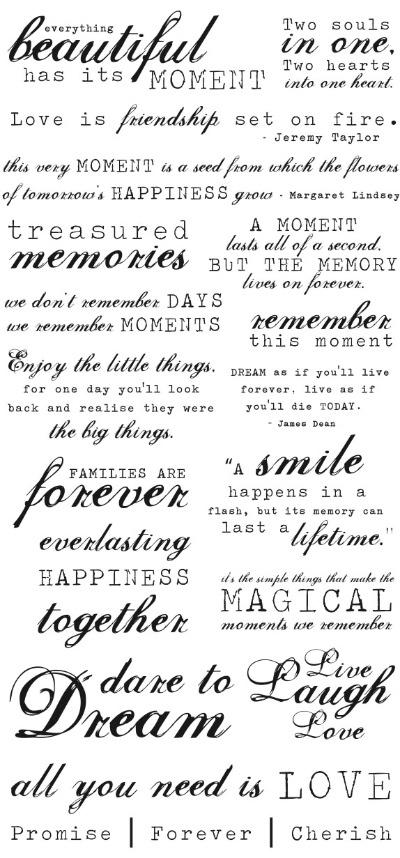 everything
beautiful
has its MOMENT
Two souls
in one,
Two hearts
into one heart.
Love is friendship set on fire.
- Jeremy Taylor
this very MOMENT is a seed from which the flowers
of tomorrow's HAPPINESS grow - Margaret Lindsey
treasured
memories
A MOMENT
lasts all of a second,
BUT THE MEMORY
lives on forever.
we don't remember DAYS
we remember MOMENTS
remember
this moment
Enjoy the little things,
for one day you'll look
back and realise they were
the big things.
DREAM as if you'll live
forever, live as if
you'll die TODAY.
- James Dean
FAMILIES ARE
forever
"A smile
happens in a
flash, but its memory can
last a lifetime."
everlasting
HAPPINESS
together
it's the simple things that make the
MAGICAL
moments we remember
dare to
Dream
Live
Laugh
Love
all you need is LOVE
Promise | Forever | Cherish